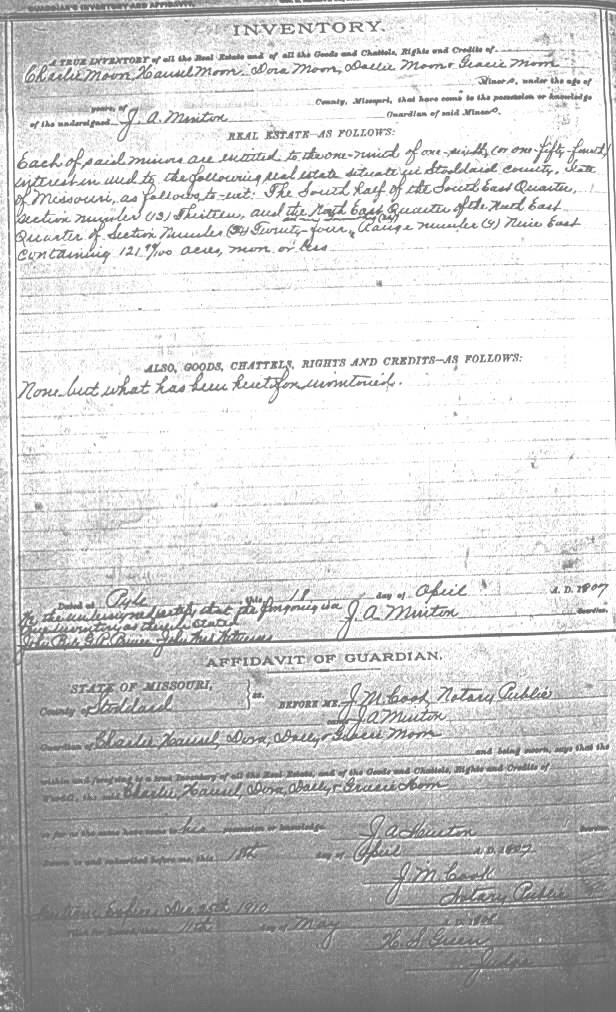 GUARDIAN'S INVENTORY AND AFFIDAVIT.
INVENTORY.
A TRUE INVENTORY of all the Real Estate and of all the Goods and Chattels, Rights and Credits of
Charlie Moon, Hansel Moon. Dora Moon, Dallie Moon & Gracie Moon
Minors, under the age of
years, of County, Missouri, that have come to the possession or knowledge
of the undersigned J. A. Minton Guardian of said Minors.
REAL ESTATE—AS FOLLOWS:
Each of said minors are entitled to the one-ninth of one-sixth, (or one-fifty-fourth)
interest in and to the following real estate situate in Stoddard County, State
of Missouri, as follows, to-wit: The South half of the South East Quarter,
Section number (13) Thirteen, and the North East Quarter of the North East
Quarter of Section Number (24) Twenty-four, Range number (9) Nine East
Containing 121 /100 acres, more or less
ALSO, GOODS, CHATTELS, RIGHTS AND CREDITS—AS FOLLOWS:
None but what has been heretofor inventoried.
Dated at Pyle, this 18 day of April A. D. 1907
We the undersigned certify that the foregoing is a
true inventory as therein stated J. A. Minton Guardian
G. P. John Witnesses
AFFIDAVIT OF GUARDIAN.
STATE OF MISSOURI,
County of Stoddard ss. BEFORE ME, J. M. Cook, Notary Public
came J. A. Minton
Guardian of Charlie, Hansel, Dora, Dally & Gracie Moon
and being sworn, says that the
within and foregoing is a true Inventory of all the Real Estate, and of the Goods and Chattels, Rights and Credits of
Ward, the said Charlie, Hansel, Dora, Dally & Gracie Moon
so far as the same have come to his possession or knowledge.
J. A. Minton Guardian
Sworn to and subscribed before me, this 18th day of April A. D. 1907.
J. M. Cook
Notary Public
Expires Dec 25th 1910
Filed for Record, this 11th day of May A. D. 190
Green
Judge